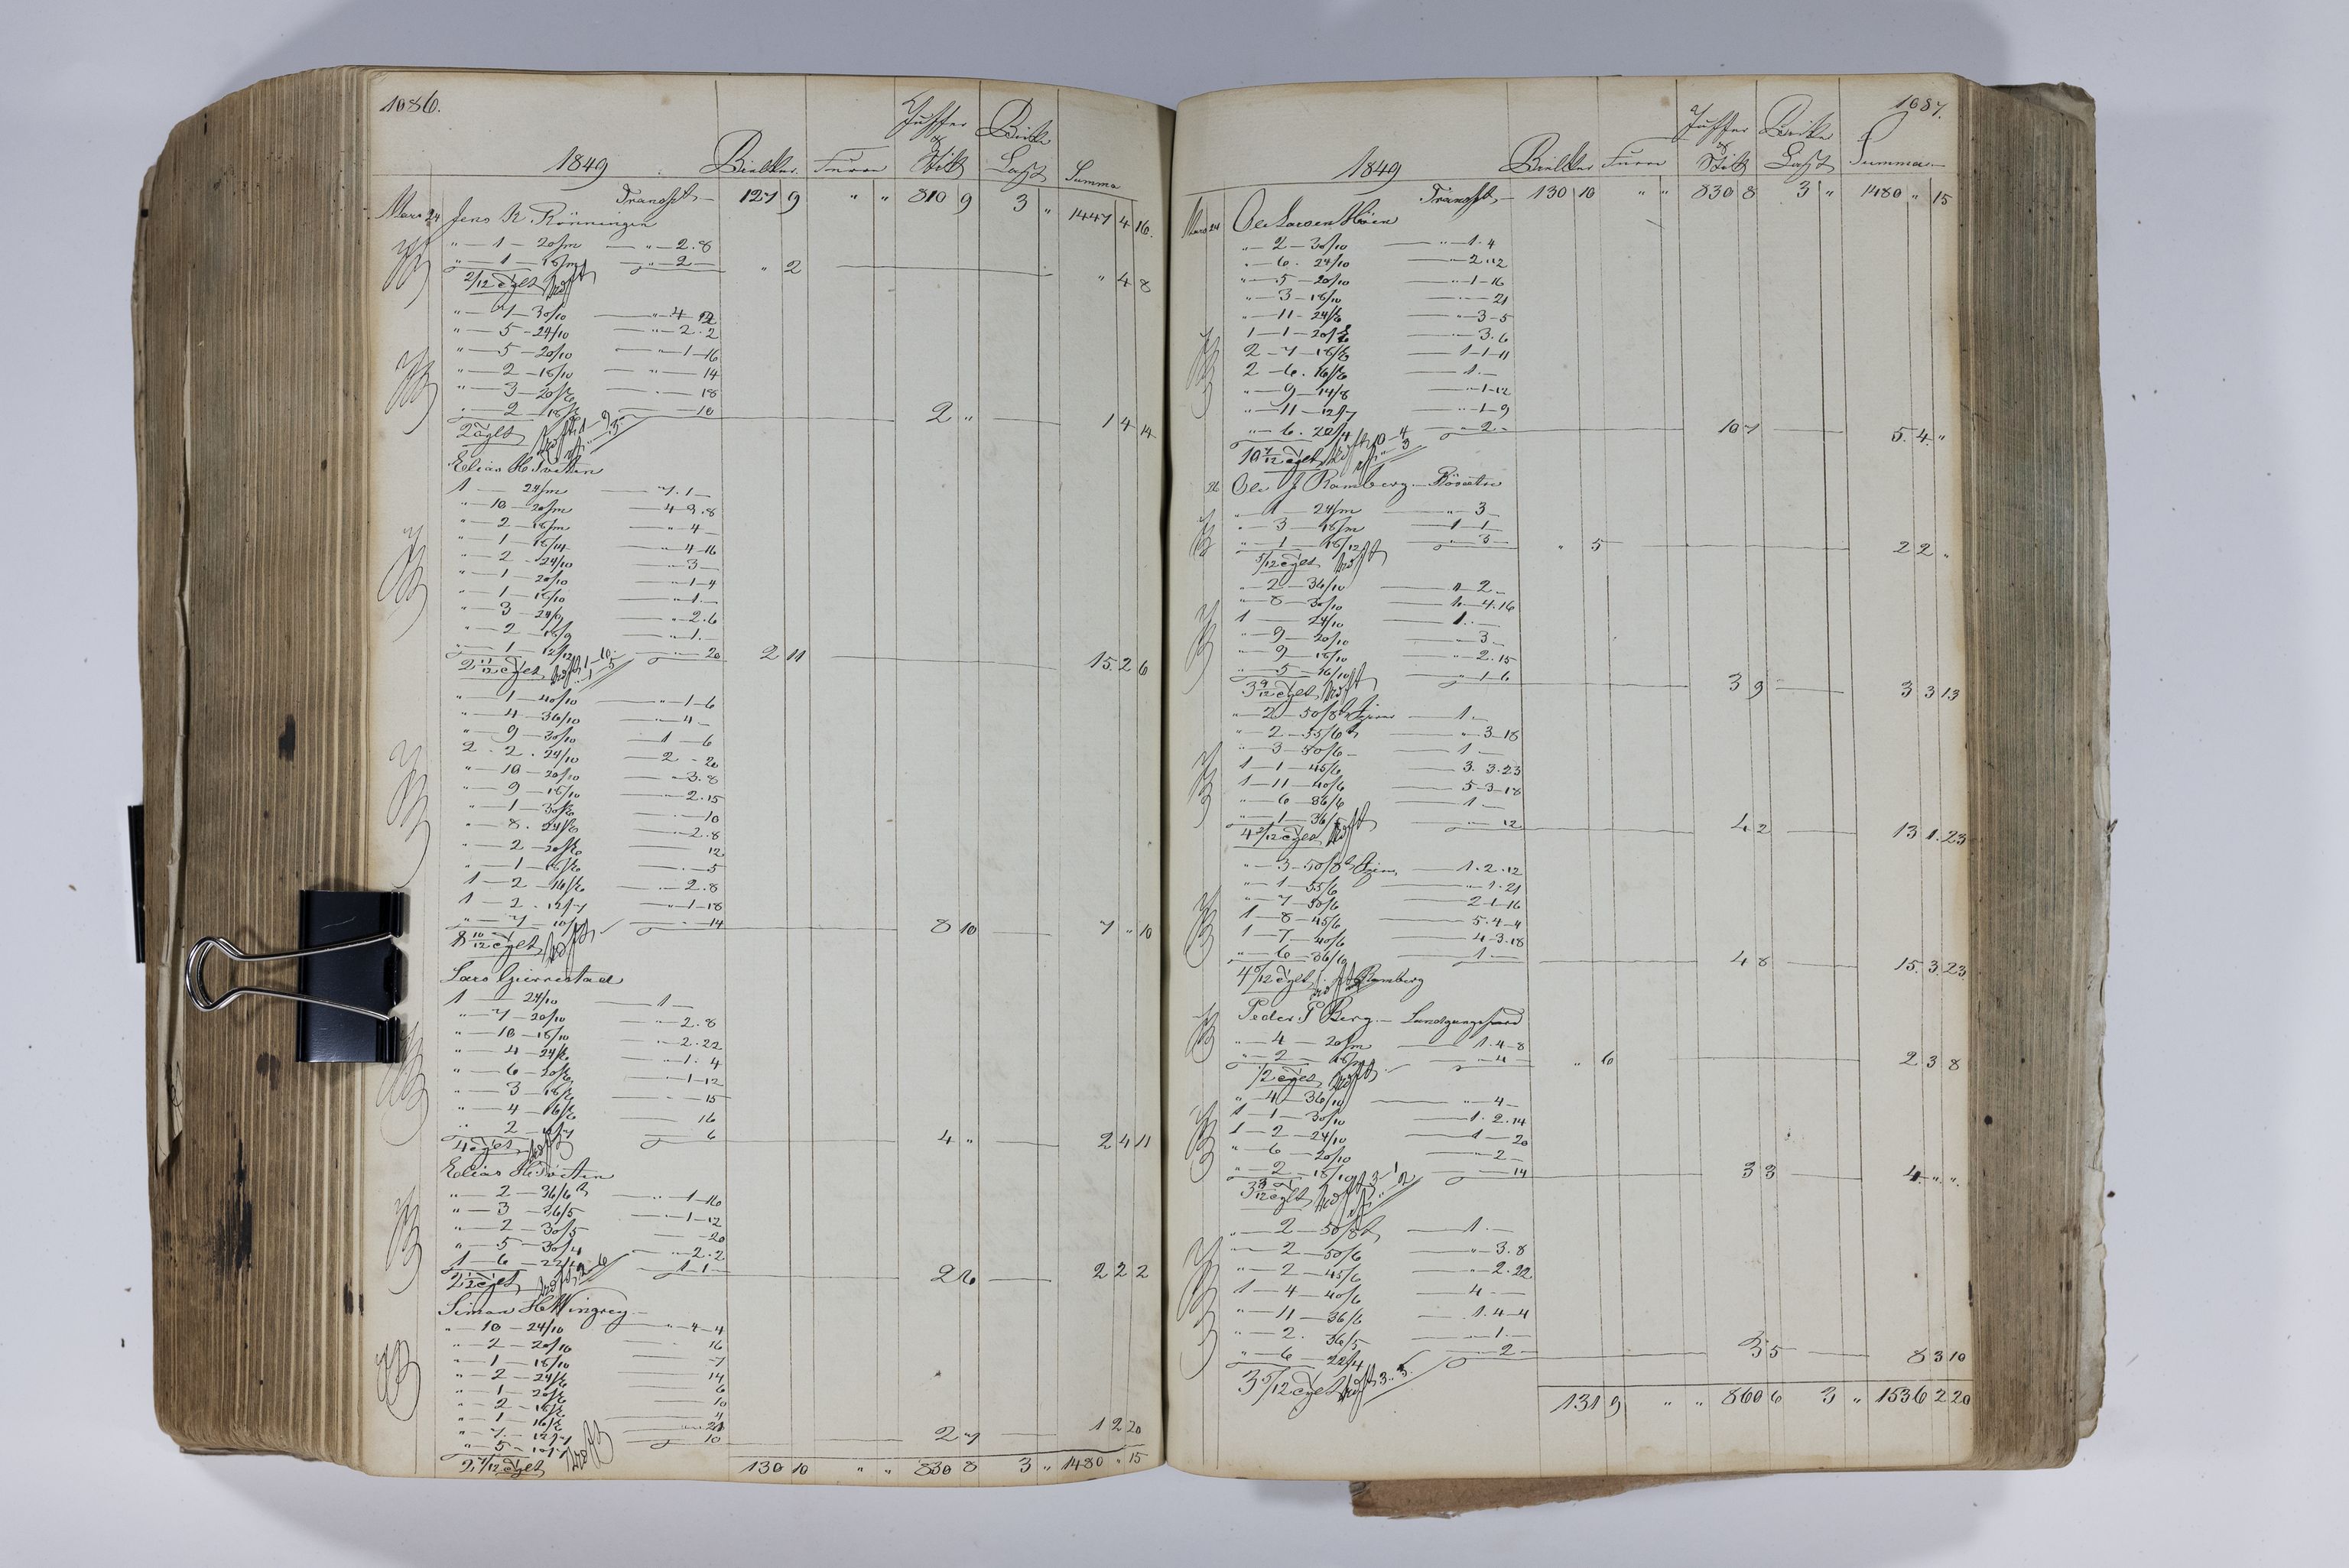 1086.
1849 Bielker. Furu Juffer & Stik Birke Last Summa
Transpt 127 9 " " 810 9 3 " 1447 4 16.
Mars 24 Jens N. Rönningen
" — 1 — 20/m — " — 2.8
" — 1 — 18/m — " — 2 — " 2 " 4 8
2/12 tylt
" — 7 — 30/10 — " — 4 — 12
" — 5 — 24/10 — " — 2.2
" — 5 — 20/10 — " — 1 — 16
" — 2 — 18/10 — " — 14
" — 3 — 20/8 — 18
" — 2 — 18/8 — 10 2 " 1 4 14
2 tylt
Elias H. Tveten
1 — 24/m — 7.1 —
" — 10 — 20/m — 4 — 3.8
" — 2 — 18/m — " — 4 —
" — 1 — 18/14 — " — 4 — 16
" — 2 — 24/10 — " — 3 —
" — 1 — 20/10 — " — 1 — 4
" — 1 — 18/10 — " — 1 —
" — 3 — 24/9 — " — 2.6
" — 2 — 18/9 — " — 1 —
" — 1 — 12/12 — " — 20 2 11 15. 2 6
2 11/12 tylt
" — 1 — 40/10 — " — 1 — 6
" — 4 — 36/10 — " — 4 —
" — 9 — 30/10 — 1 — 6
2 . 2 . 24/10 — 2 — 20
" — 10 — 20/10 — " — 3.8
" — 9 — 18/10 — " — 2.15
" — 1 — 30/8 — 10
" — 8 . 24/8 — " — 2.8
" — 2 — 20/8 — 12
" — 1 — 18/8 — 5
1 — 2 — 16/8 — " — 2.8
1 — 2 . 12/7 — " — 1 — 18
" — 7 — 10/7 — " — 14 8 10 7 " 10
8 10/12 tylt
Lars Gierrestad
1 — 24/10 — 1 —
" — 7 — 20/10 — " — 2.8
" — 10 — 18/10 — " — 2.22
" — 4 — 24/8 — " — 1. 4
" — 6 — 20/8 — " — 1 — 12
" — 3 — 18/8 — " — 15
" — 4 — 16/8 — 16
" — 2 — 12/7 — 6 4 " 2 4 11
4 tylt
Elias H. Tveten
" — 2 — 36/6 — " — 1 — 16
" — 3 — 36/5 — " — 1 — 12
" — 2 — 30/5 — 20
" — 5 — 30/4 — " — 2.2
1 — 6 — 22/4 — 1 1 — 2 6 2 2 2
Simon H. Wingrey
" — 10 — 24/10 — " — 4 — 4
" — 2 — 20/10 — 16
" — 1 — 18/10 — 7
" — 2 — 24/8 — 14
" — 1 — 20/8 — 6
" — 2 — 18/8 — 10
" — 1 — 16/8 — 4
" — 7 — 12/7 — 21
" — 5 — 10/7 — 10 2 7 1 2 20
2 7/12 tylt
130 10 " " 830 8 3 " 1480 " 15
1087.
1849 Bielker Furu Juffer & Stik Birke Last Summa
Transpt 130 10 " " 830 8 3 " 1480 " 15
Mars 24 Ole Larsen Höien
" — 2 — 30/10 — " — 1.4
" — 6 . 24/10 — " — 2.12
" — 5 — 20/10 — " — 1 — 16
" — 3 — 18/10 — " — 21
" — 11 — 24/8 — " — 3 — 5
1 — 1 — 20/8 — " — 3.6
2 — 7 — 18/8 — 1 — 1 — 11
2 — 6 . 16/8 — 1 . —
" — 9 — 14/8 — " — 1 — 12
" — 11 — 12/7 — " — 1 — 9
" — 6 . 22/4 — " — 2 — 10 7 5. 4 "
10 7/12 tylt
26 Ole J Ramberg — Röseth
" — 1 — 24/m — " — 3 —
" 3 — 18/m — 1 — 1 —
" — 1 — 18/12 — " — 3 — " 5 2 2 "
5/12 tylt
" — 2 — 36/10 — " — 2 —
" — 8 — 30/10 — 1 — 4.16
1 — 24/10 — 1 . —
" — 9 — 20/10 — " — 3 —
" — 9 — 18/10 — " — 2.15
" — 5 — 16/10 — " — 1 — 6 3 9 3 3 13
3 9/12 tylt
" — 2 — 50/8 — 1 —
" — 2 — 55/6 — " — 3 — 18
" — 3 — 50/6 — 1 —
1 — 1 — 45/6 — 3. 3.23
1 — 11 — 40/6 — 5 — 3 — 18
" — 6 — 36/6 — 1 —
" — 1 — 36/5 — " — 12 4 2 13 1. 23
4 2/12 tylt
" — 3 — 50/8 — 1.2.12
" — 1 — 55/6 — " — 1.21
" — 7 — 50/6 — 2 — 1 — 16
1 — 8 — 45/6 — 5.4 — 4
1 — 7 — 40/6 — 4 — 3.18
" — 6 — 36/6 — 1 — 4 8 15. 3. 23
4 8/12 tylt Ramberg
Peder P Berg —
" — 4 — 20/m — 1.4 — 8
" — 2 — 18/m — " — 4 — " 6 2 3 8
" — 4 — 36/10 — " — 4 —
1 — 1 — 30/10 — 1. 2.14
1 — 2 — 24/10 — 1 — 20
" — 6 — 20/10 — " — 2 —
" — 2 — 18/10 — 14 3 3 4. " "
3 3/12 tylt
" — 2 — 50/8 — 1 . —
" — 2 — 50/6 — " — 3.8
" — 2 — 45/6 — " — 2.22
1 — 4 — 40/6 — 4 —
" — 11 — 36/6 — 1.4 — 4
" — 2. 36/5 — " — 1 —
" — 6 — 22/4 — " — 2 — 3 5 8 3 10
3 5/12 tylt
131 9 " " 860 6 3 " 1536 2 20